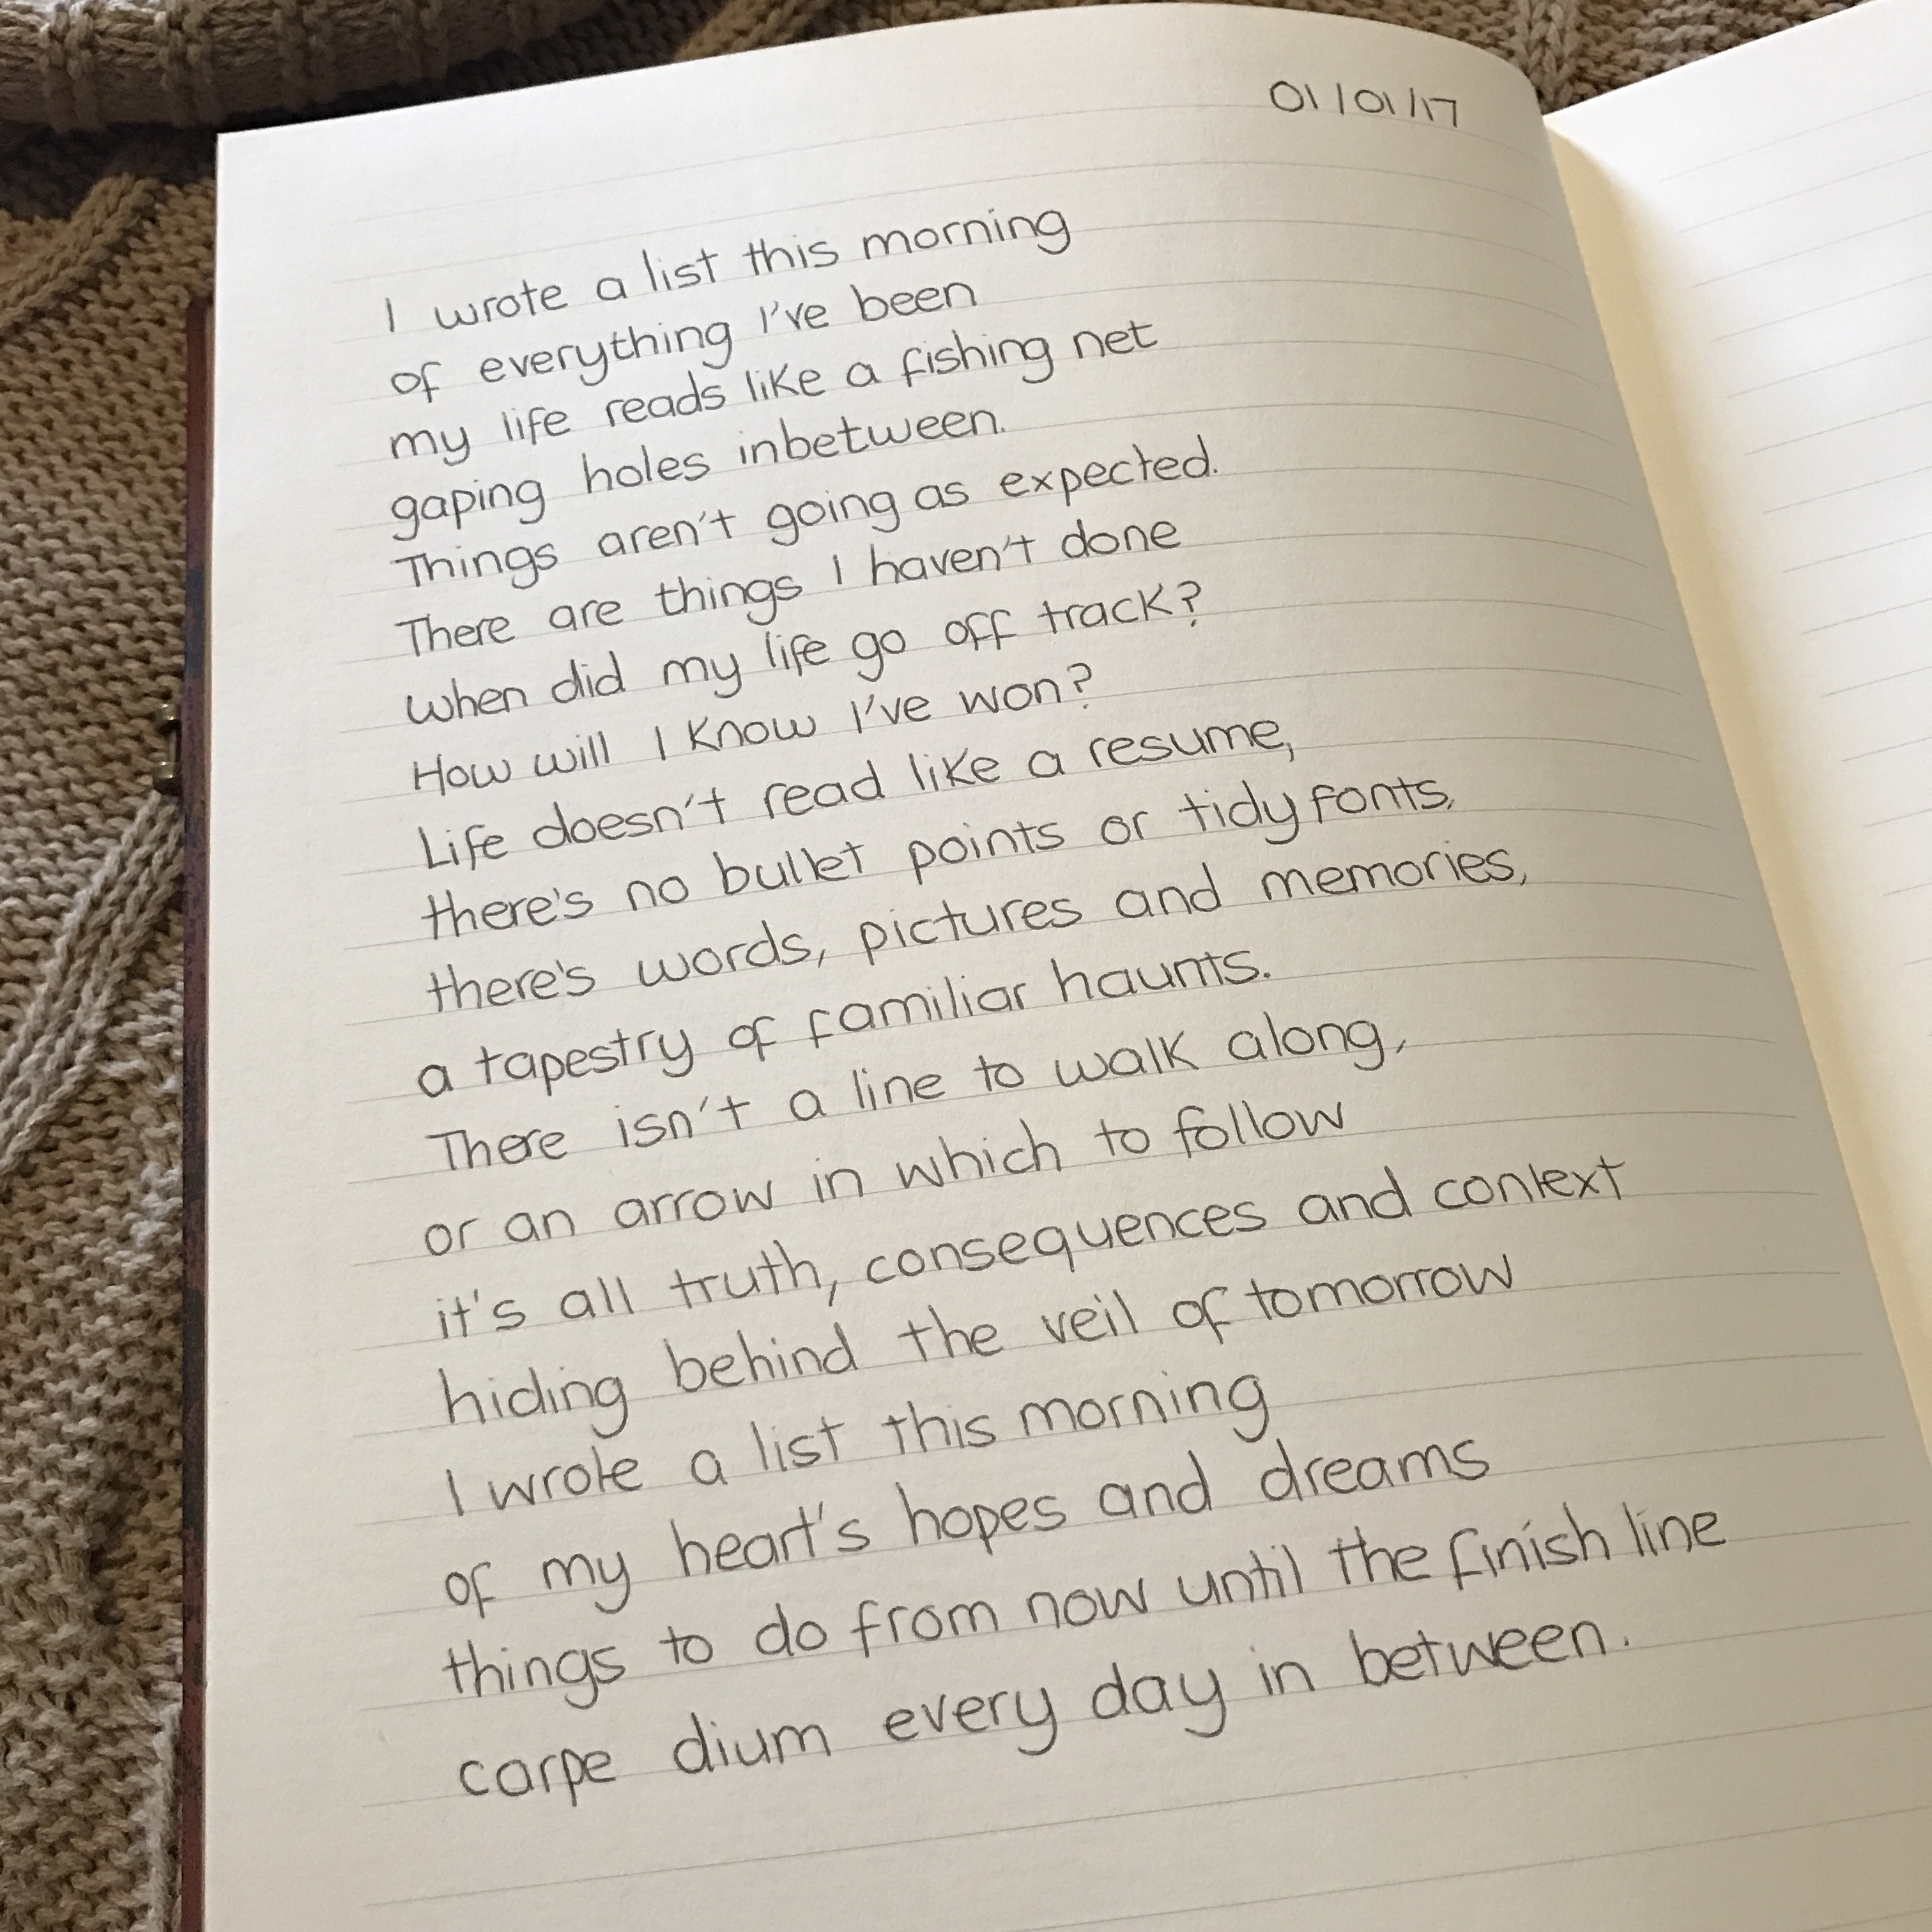 01/01/17
I wrote a list this morning
of everything I've been
my life reads like a fishing net
gaping holes inbetween.
Things aren't going as expected.
There are things I haven't done
when did my life go off track?
How will I know I've won?
Life doesn't read like a resume,
there's no bullet points or tidy fonts,
there's words, pictures and memories,
a tapestry of familiar haunts.
There isn't a line to walk along,
or an arrow in which to follow
it's all truth, consequences and context
hiding behind the veil of tomorrow
I wrote a list this morning
of my heart's hopes and dreams
things to do from now until the finish line
carpe dium every day in between.